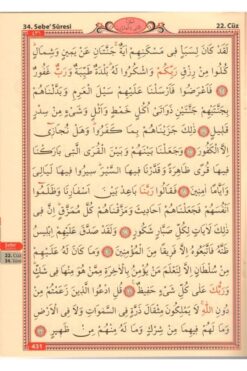 34. Sebe' Sûresi 22. Cüz
لَقَدْ كَانَ لِسَبَإٍ فِي مَسْكَنِهِمْ اٰيَةٌ جَنَّتَانِ عَنْ يَمِينٍ وَشِمَالٍ
كُلُوا مِنْ رِزْقِ رَبِّكُمْ وَاشْكُرُوا لَهُ بَلْدَةٌ طَيِّبَةٌ وَرَبٌّ غَفُورٌ
فَاَعْرَضُوا فَاَرْسَلْنَا عَلَيْهِمْ سَيْلَ الْعَرِمِ وَبَدَّلْنَاهُمْ
بِجَنَّتَيْهِمْ جَنَّتَيْنِ ذَوَاتَيْ اُكُلٍ خَمْطٍ وَاَثْلٍ وَشَيْءٍ مِنْ سِدْرٍ
قَلِيلٍ ذٰلِكَ جَزَيْنَاهُمْ بِمَا كَفَرُوا وَهَلْ نُجَازِي
اِلَّا الْكَفُورَ وَجَعَلْنَا بَيْنَهُمْ وَبَيْنَ الْقُرَى الَّتِي بَارَكْنَا
فِيهَا قُرًى ظَاهِرَةً وَقَدَّرْنَا فِيهَا السَّيْرَ سِيرُوا فِيهَا لَيَالِيَ
وَاَيَّامًا اٰمِنِينَ فَقَالُوا رَبَّنَا بَاعِدْ بَيْنَ اَسْفَارِنَا وَظَلَمُوا
اَنْفُسَهُمْ فَجَعَلْنَاهُمْ اَحَادِيثَ وَمَزَّقْنَاهُمْ كُلَّ مُمَزَّقٍ اِنَّ فِي
ذٰلِكَ لَاٰيَاتٍ لِكُلِّ صَبَّارٍ شَكُورٍ وَلَقَدْ صَدَّقَ عَلَيْهِمْ اِبْلِيسُ
ظَنَّهُ فَاتَّبَعُوهُ اِلَّا فَرِيقًا مِنَ الْمُؤْمِنِينَ وَمَا كَانَ لَهُ عَلَيْهِمْ
مِنْ سُلْطَانٍ اِلَّا لِنَعْلَمَ مَنْ يُؤْمِنُ بِالْاٰخِرَةِ مِمَّنْ هُوَ مِنْهَا فِي شَكٍّ
وَرَبُّكَ عَلٰى كُلِّ شَيْءٍ حَفِيظٌ قُلِ ادْعُوا الَّذِينَ زَعَمْتُمْ مِنْ
دُونِ اللّٰهِ لَا يَمْلِكُونَ مِثْقَالَ ذَرَّةٍ فِي السَّمٰوَاتِ وَلَا فِي الْاَرْضِ
وَمَا لَهُمْ فِيهِمَا مِنْ شِرْكٍ وَمَا لَهُ مِنْهُمْ مِنْ ظَهِيرٍ
431
22. Cüz